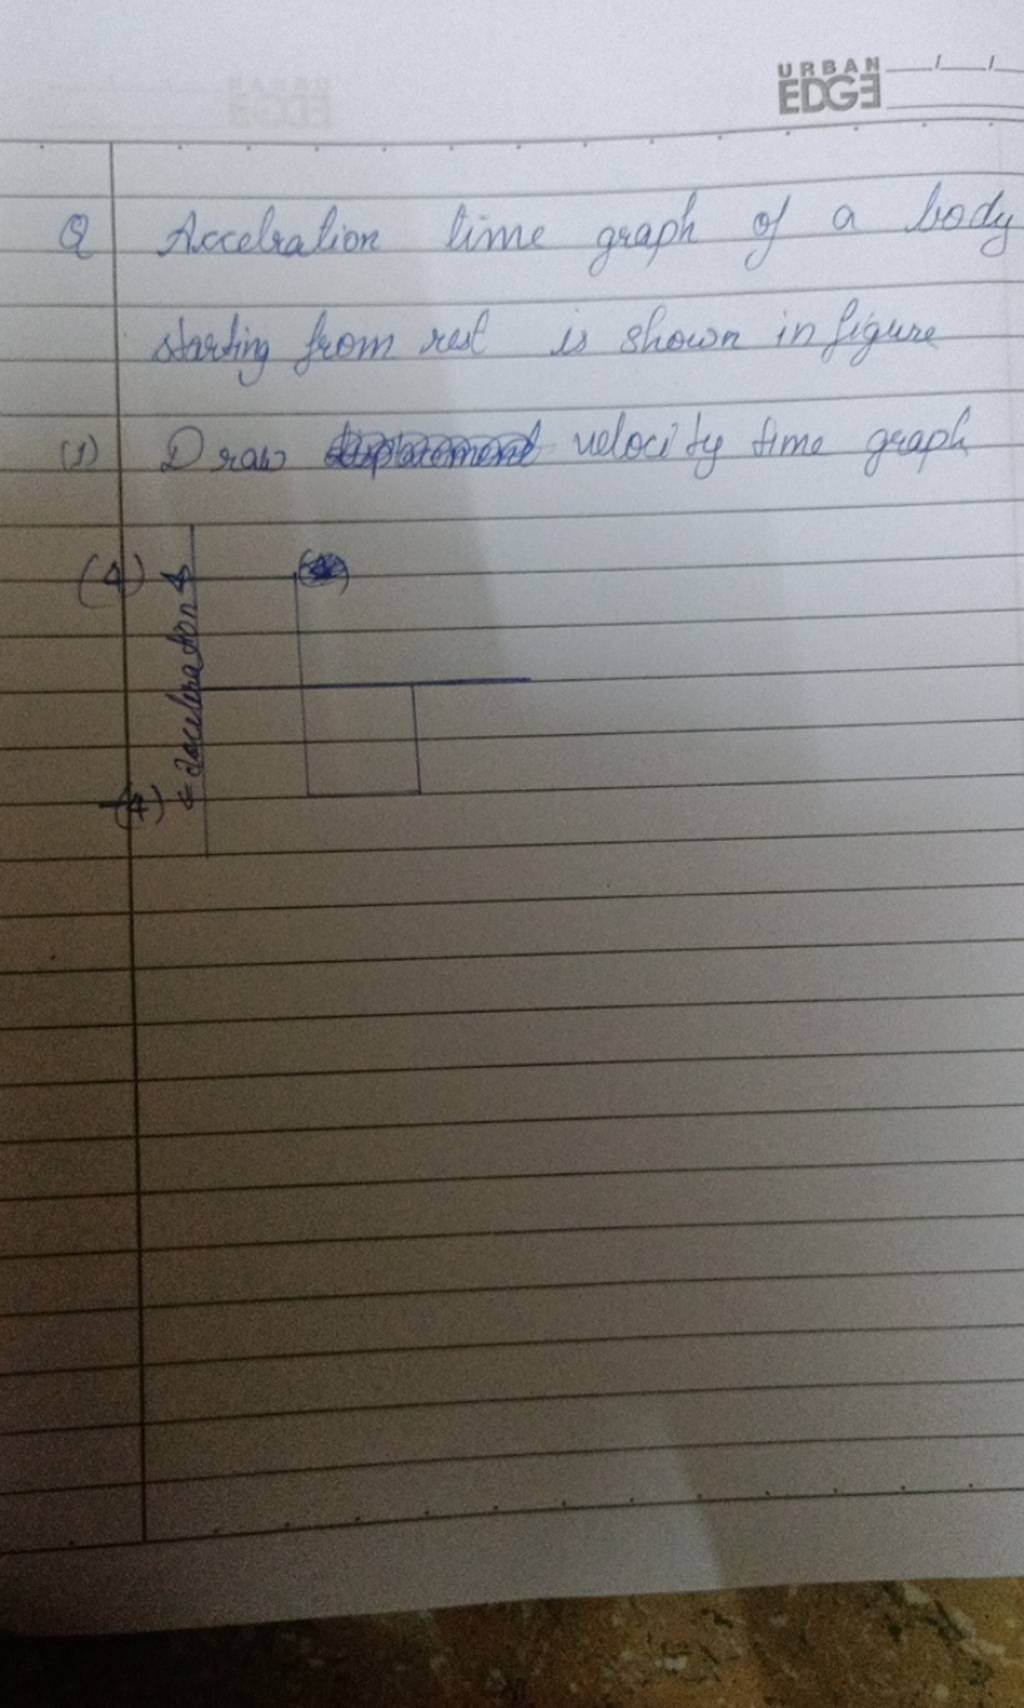 URBAN
EDGE
Q Accelration time graph of a body
starting from rest is shown in figure
(1) Draw velocity time graph
(4)
acceleration
-(4)